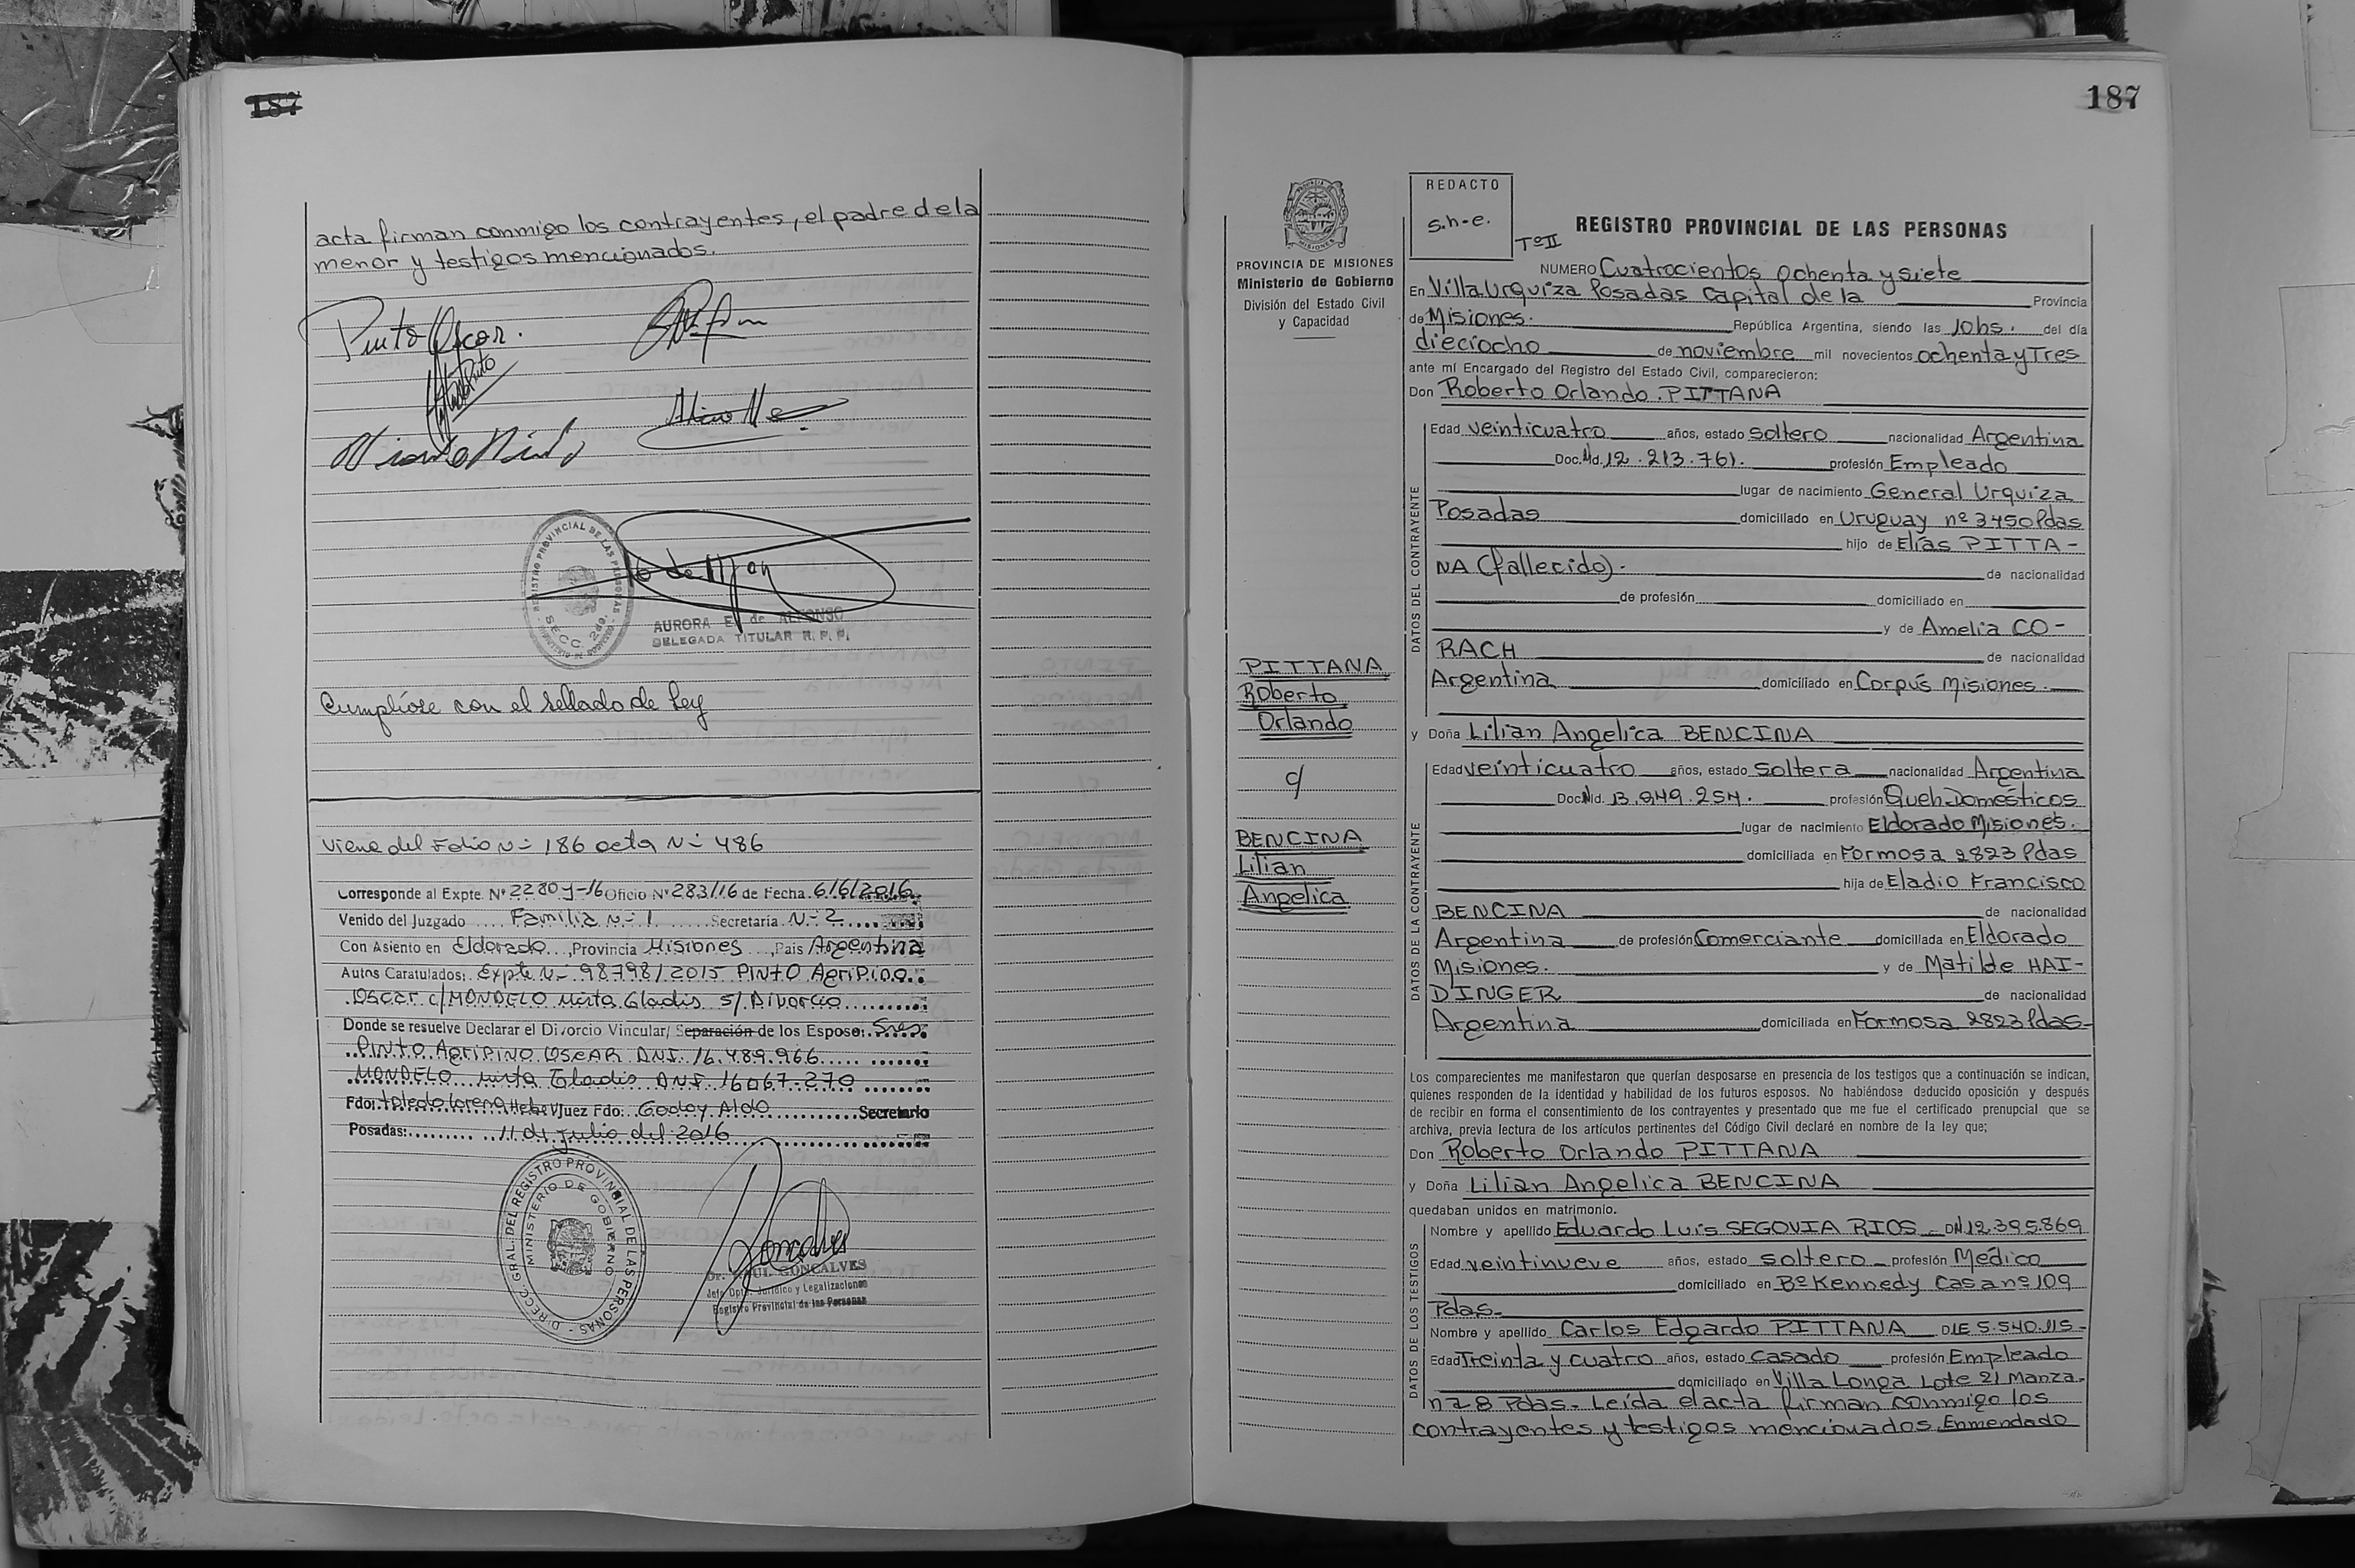 187
acta firman conmigo los contrayentes, el padre de la
menor y testigos mencionados.
Pinto Oscar.
REGISTRO PROVINCIAL DE LAS PERSONAS
SECC. 2da.
AURORA E. de ALFONSO
DELEGADA TITULAR R. P. P.
Cumplióse con el sellado de Ley
Viene del Folio N= 186 acta N= 486
Corresponde al Expte. Nº 2280 J-16 Oficio Nº 283/16 de Fecha 6/6/2016
Venido del Juzgado Familia N= 1 Secretaria N= 2
Con Asiento en Eldorado, Provincia Misiones, Pais Argentina
Autos Caratulados: Expte N= 98798/2015 PINTO Agripino
Oscar c/ MONDELO Mirta Gladis s/ Divorcio
Donde se resuelve Declarar el Divorcio Vincular/ Separación de los Esposo: Sres
PINTO Agripino OSCAR DNI. 16.489.966
MONDELO Mirta Gladis DNI 16067-270
Fdo: Toledo Lorena Hebe Juez Fdo: Godoy Aldo Secretario
Posadas: 11 de julio del 2016
DIRECC. GRAL. DEL REGISTRO PROVINCIAL DE LAS PERSONAS
MINISTERIO DE GOBIERNO
Dr. RAUL GONCALVES
Jefe Dpto. Jurídico y Legalizaciones
Registro Provincial de las Personas
187
PROVINCIA DE MISIONES
Ministerio de Gobierno
División del Estado Civil
y Capacidad
PITTANA
Roberto
Orlando
c/
BENCINA
Lilian
Angelica
REDACTO
s.h-e.
Tº II
REGISTRO PROVINCIAL DE LAS PERSONAS
NUMERO Cuatrocientos ochenta y siete
En Villa Urquiza Posadas Capital de la Provincia
de Misiones. República Argentina, siendo las 10hs. del día
dieciocho de noviembre mil novecientos ochenta y Tres
ante mí Encargado del Registro del Estado Civil, comparecieron:
Don Roberto Orlando PITTANA
DATOS DEL CONTRAYENTE
Edad veinticuatro años, estado soltero nacionalidad Argentina
Doc. Nd. 12.213.761. profesión Empleado
lugar de nacimiento General Urquiza
Posadas domiciliado en Uruguay nº 3450 Pdas
hijo de Elías PITTA-
NA (fallecido). de nacionalidad
de profesión domiciliado en
y de Amelia CO-
RACH de nacionalidad
Argentina domiciliado en Corpus Misiones.
y Doña Lilian Angelica BENCINA
DATOS DE LA CONTRAYENTE
Edad veinticuatro años, estado soltera nacionalidad Argentina
Doc. Nd. 13.949.254. profesión Queh. Domésticos
lugar de nacimiento Eldorado Misiones.
domiciliada en Formosa 2823 Pdas
hija de Eladio Francisco
BENCINA de nacionalidad
Argentina de profesión Comerciante domiciliada en Eldorado
Misiones. y de Matilde HAI-
DINGER de nacionalidad
Argentina domiciliada en Formosa 2823 Pdas-
Los comparecientes me manifestaron que querían desposarse en presencia de los testigos que a continuación se indican,
quienes responden de la identidad y habilidad de los futuros esposos. No habiéndose deducido oposición y después
de recibir en forma el consentimiento de los contrayentes y presentado que me fue el certificado prenupcial que se
archiva, previa lectura de los artículos pertinentes del Código Civil declaré en nombre de la ley que;
Don Roberto Orlando PITTANA
y Doña Lilian Angelica BENCINA
quedaban unidos en matrimonio.
DATOS DE LOS TESTIGOS
Nombre y apellido Eduardo Luis SEGOVIA RIOS DNI 12.395.869
Edad veintinueve años, estado soltero profesión Médico
domiciliado en Bº Kennedy Casa nº 109
Pdas-
Nombre y apellido Carlos Edgardo PITTANA DLE 5.540.115-
Edad Treinta y cuatro años, estado casado profesión Empleado
domiciliado en Villa Longa Lote 21 Manza-
na 8 Pdas- Leída el acta firman conmigo los
contrayentes y testigos mencionados. Enmendado